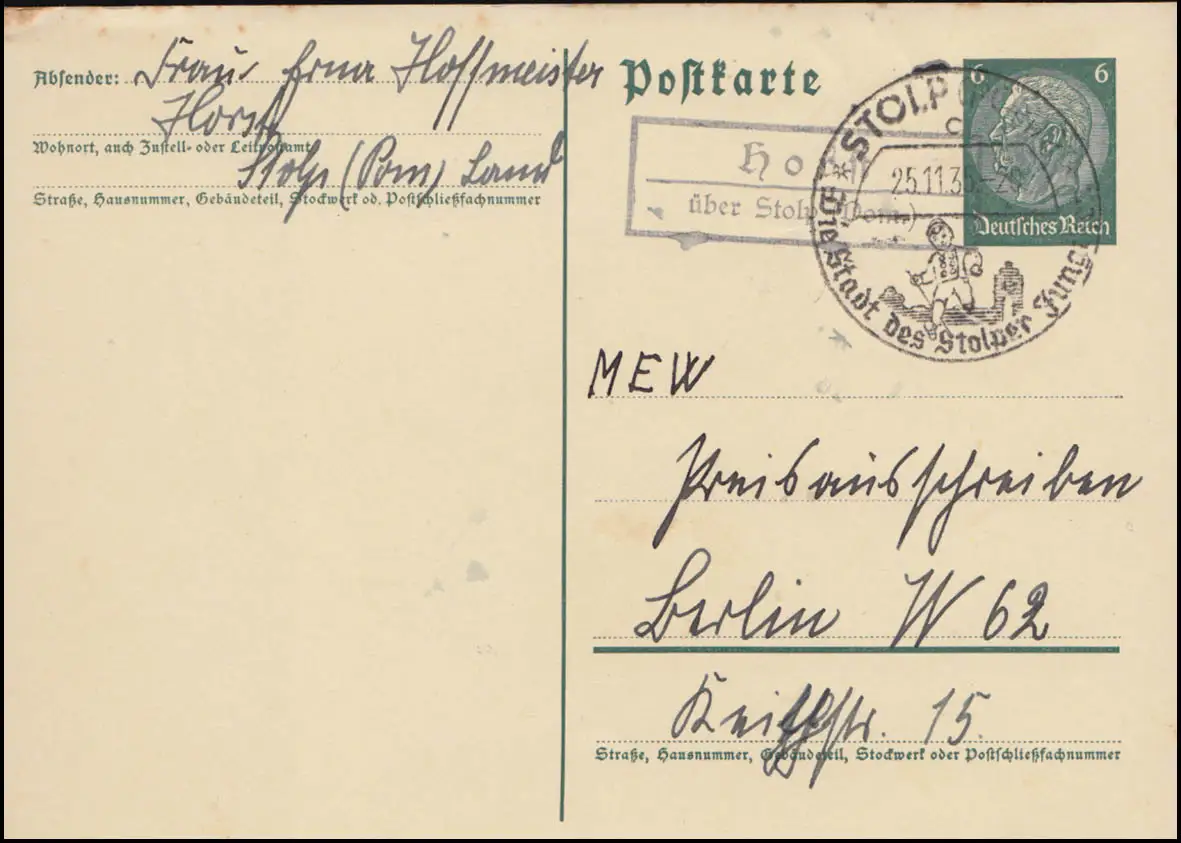 Absender: Frau Erna Hoffmeister
Horst
Wohnort, auch Zustell- oder Leitpostamt
Stolp (Pom) Land
Straße, Hausnummer, Gebäudeteil, Stockwerk od. Postschließfachnummer
Postkarte
6 6
Deutsches Reich
über Stolp (Pom.)
* STOLP
25.11.35
Die Stadt des Stolper Jungchen
MEW
Preisausschreiben
Berlin W 62
Keithstr. 15.
Straße, Hausnummer, Gebäudeteil, Stockwerk oder Postschließfachnummer